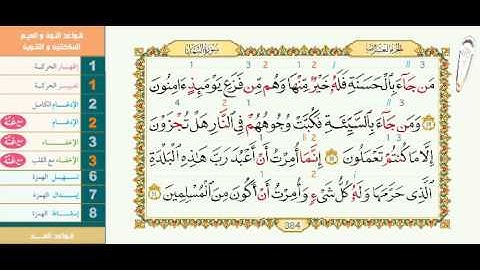 قواعد النون و الميم
الساكنتين و التنوين
إظهار الحركة 1
تمييز الحركة 1
الإدغام الكامل 2
الإدغام غنة 2
الإخفاء غنة 3
الإخفاء مع القلب غنة 3
تسهيل الهمزة 6
إبدال الهمزة 7
إسقاط الهمزة 8
قواعد المد
سورة النمل
الجزء العشرون
مَن جَآءَ بِالْحَسَنَةِ فَلَهُۥ خَيْرٌ مِّنْهَا وَهُم مِّن فَزَعٍ يَوْمَئِذٍ ءَامِنُونَ
٨٩ وَمَن جَآءَ بِالسَّيِّئَةِ فَكُبَّتْ وُجُوهُهُمْ فِي النَّارِ هَلْ تُجْزَوْنَ
إِلَّا مَا كُنتُمْ تَعْمَلُونَ ٩٠ إِنَّمَآ أُمِرْتُ أَنْ أَعْبُدَ رَبَّ هَٰذِهِ الْبَلْدَةِ
الَّذِي حَرَّمَهَا وَلَهُۥ كُلُّ شَيْءٍ وَأُمِرْتُ أَنْ أَكُونَ مِنَ الْمُسْلِمِينَ ٩١
384